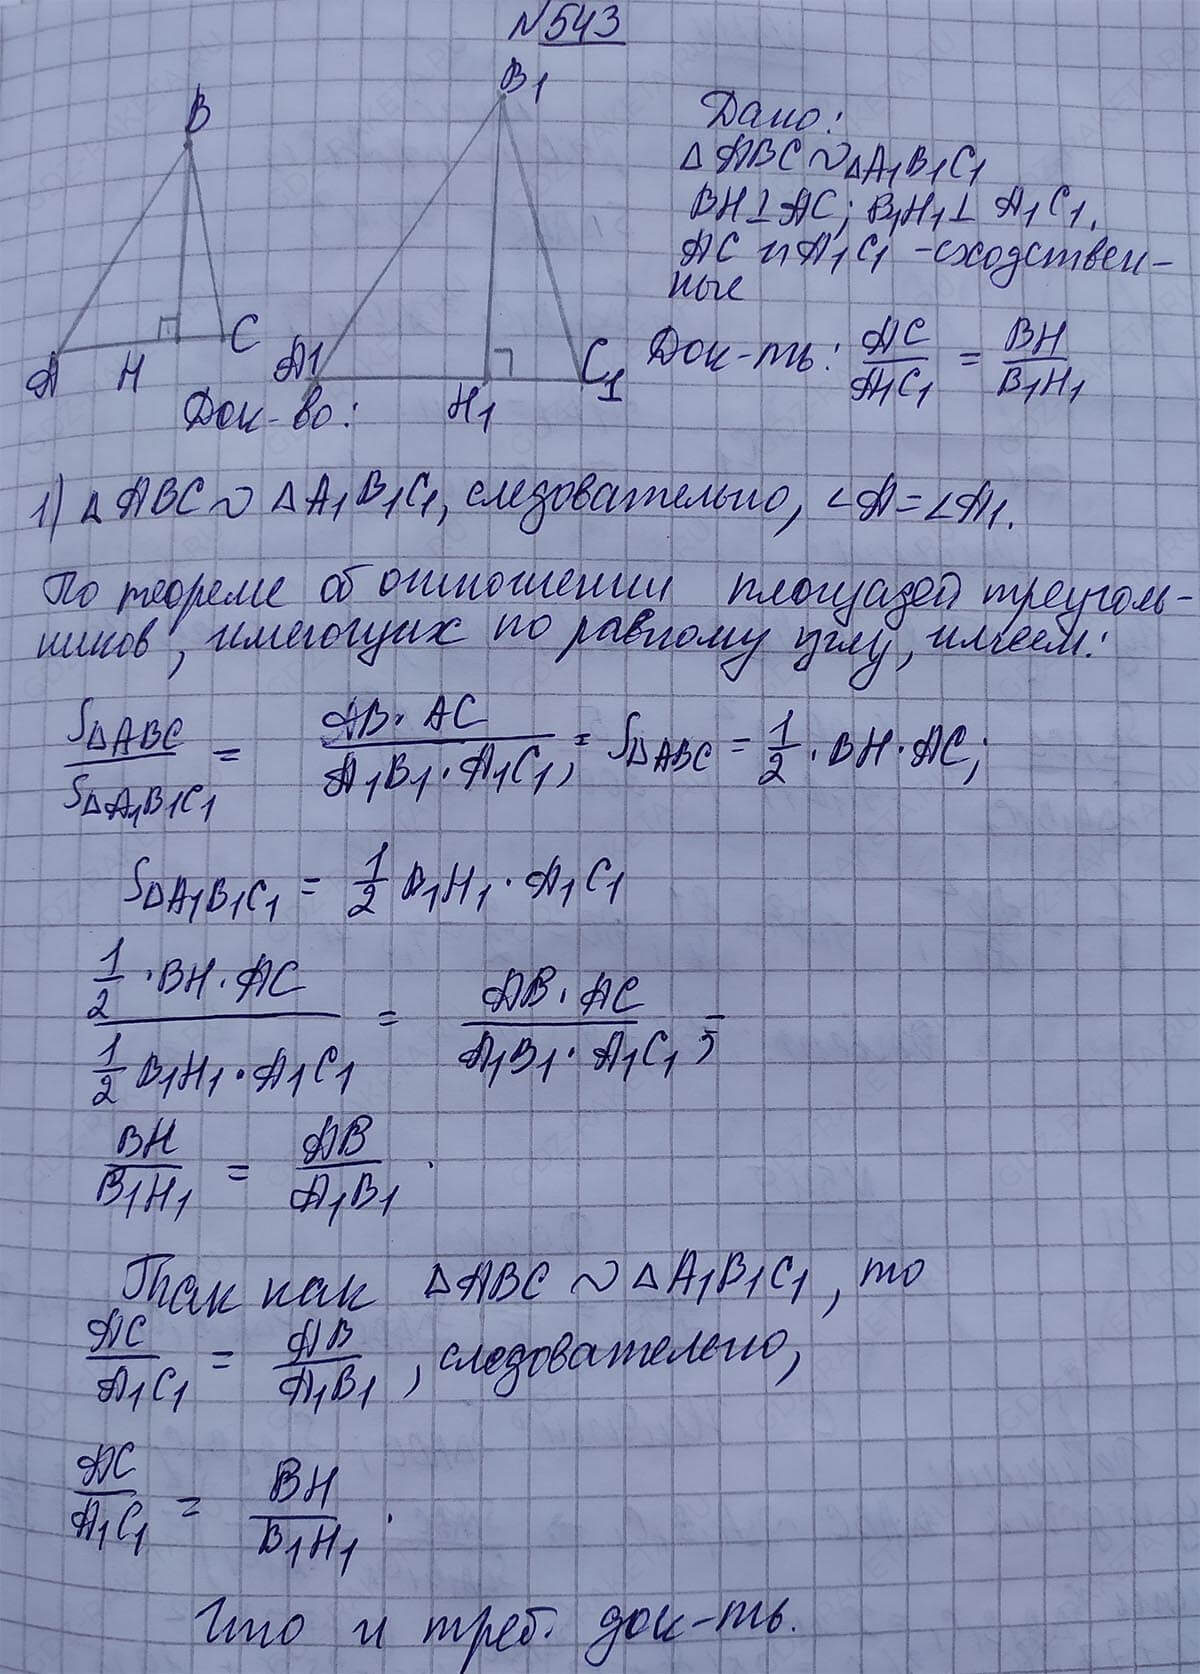 N543
B
B1
A
H
C
A1
H1
C1
Дано:
△ABC∾△A1B1C1
BH⊥AC; B1H1⊥A1C1.
AC и A1C1 -сходствен-
ные
Док-ть: AC/A1C1 = BH/B1H1
Док-во:
1) △ABC∾△A1B1C1, следовательно, ∠A=∠A1.
По теореме об отношении площадей треуголь-
ников, имеющих по равному углу, имеем:
S△ABC/S△A1B1C1 = AB·AC/A1B1·A1C1; = S△ABC = 1/2·BH·AC;
S△A1B1C1 = 1/2 B1H1·A1C1
1/2·BH·AC / 1/2 B1H1·A1C1 = AB·AC/A1B1·A1C1;
BH/B1H1 = AB/A1B1.
Так как △ABC∾△A1B1C1, то
AC/A1C1 = AB/A1B1, следователено,
AC/A1C1 = BH/B1H1.
Что и треб. док-ть.